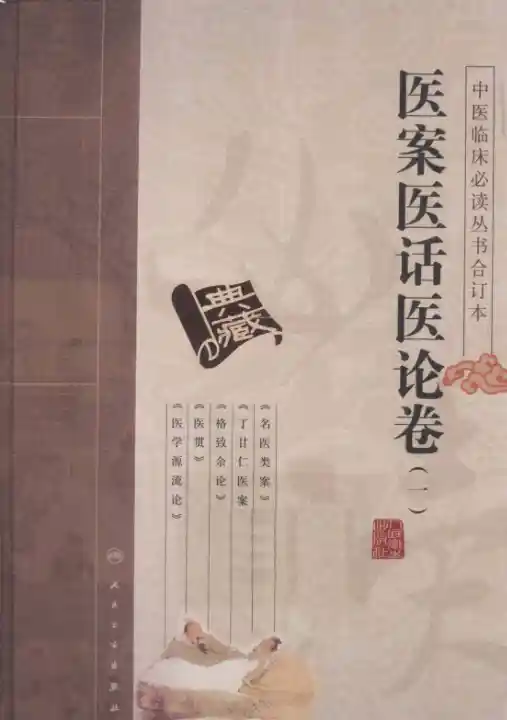 中医临床必读丛书合订本
医案医话医论卷
(一)
典藏
《名医类案》
《丁甘仁医案
《格致余论》
《医贯》
《医学源流论》
人民卫生出版社